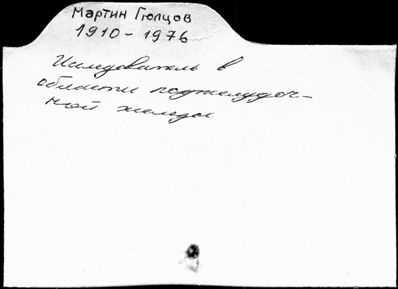 Мартин Гюлцов
1910 - 1976
Исследователь в
области поджелудоч-
ной железы